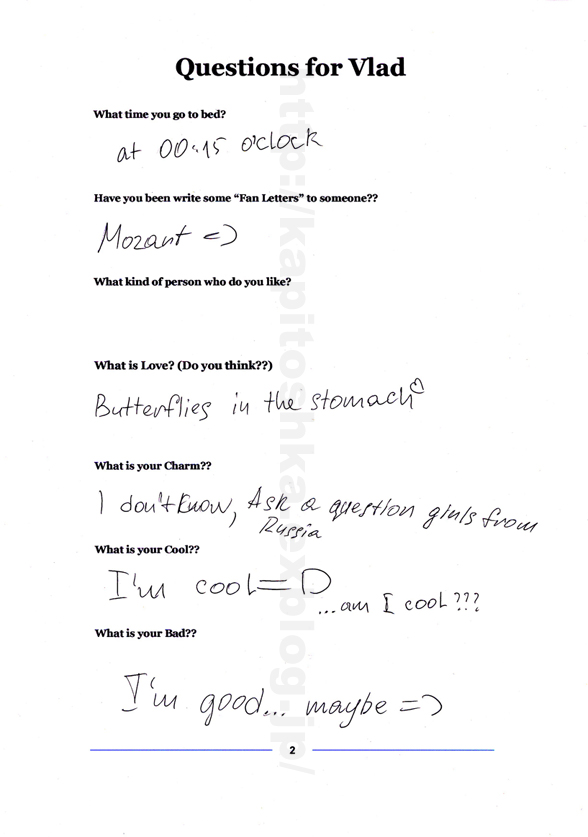 Questions for Vlad
What time you go to bed?
at 00.15 o'clock
Have you been write some “Fan Letters” to someone??
Mozart =)
What kind of person who do you like?
What is Love? (Do you think??)
Butterflies in the stomach
What is your Charm??
I don't know, Ask a question girls from
Russia
What is your Cool??
I'm cool=D
...am I cool???
What is your Bad??
I'm good... maybe =)
2
http://kapitoshka.exblog.jp/